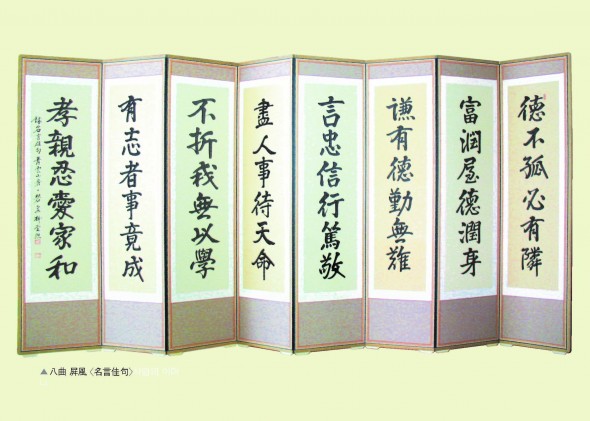 德不孤必有隣
富潤屋德潤身
謙有德勤無難
言忠信行篤敬
盡人事待天命
不折我無以學
有志者事竟成
孝親忍愛家和
錄名言佳句
▲八曲 屛風〈名言佳句〉